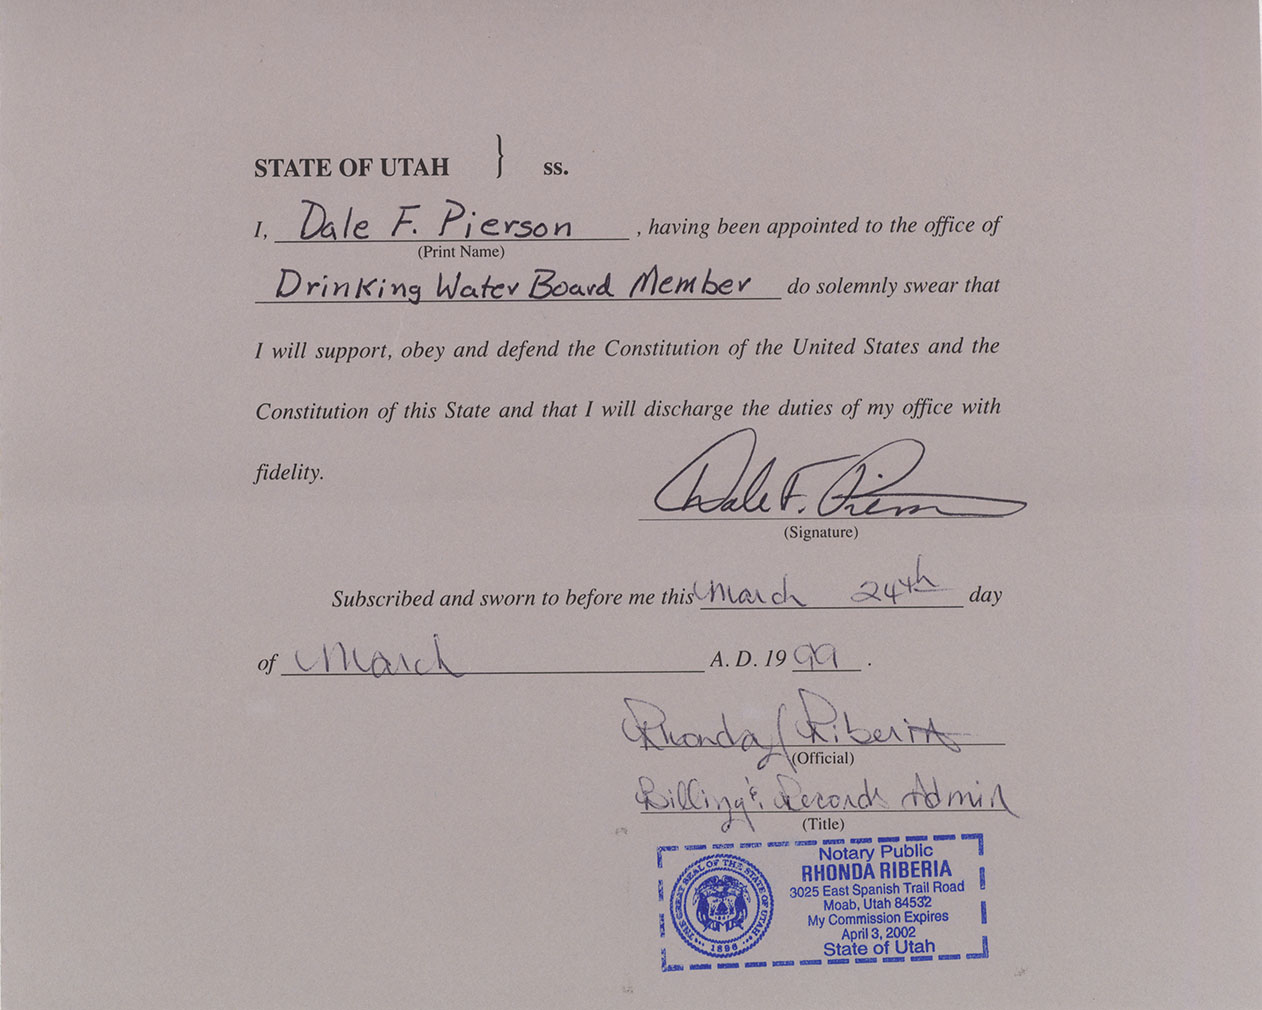 STATE OF UTAH } ss.
I, Dale F. Pierson, having been appointed to the office of
(Print Name)
Drinking Water Board Member do solemnly swear that
I will support, obey and defend the Constitution of the United States and the
Constitution of this State and that I will discharge the duties of my office with
fidelity.
Dale F. Pierson
(Signature)
Subscribed and sworn to before me this March 24th day
of March A. D. 1999.
Rhonda Riberia
(Official)
Billing & Records Admin
(Title)
Notary Public
RHONDA RIBERIA
3025 East Spanish Trail Road
Moab, Utah 84532
My Commission Expires
April 3, 2002
State of Utah
THE GREAT SEAL OF THE STATE OF UTAH
1896